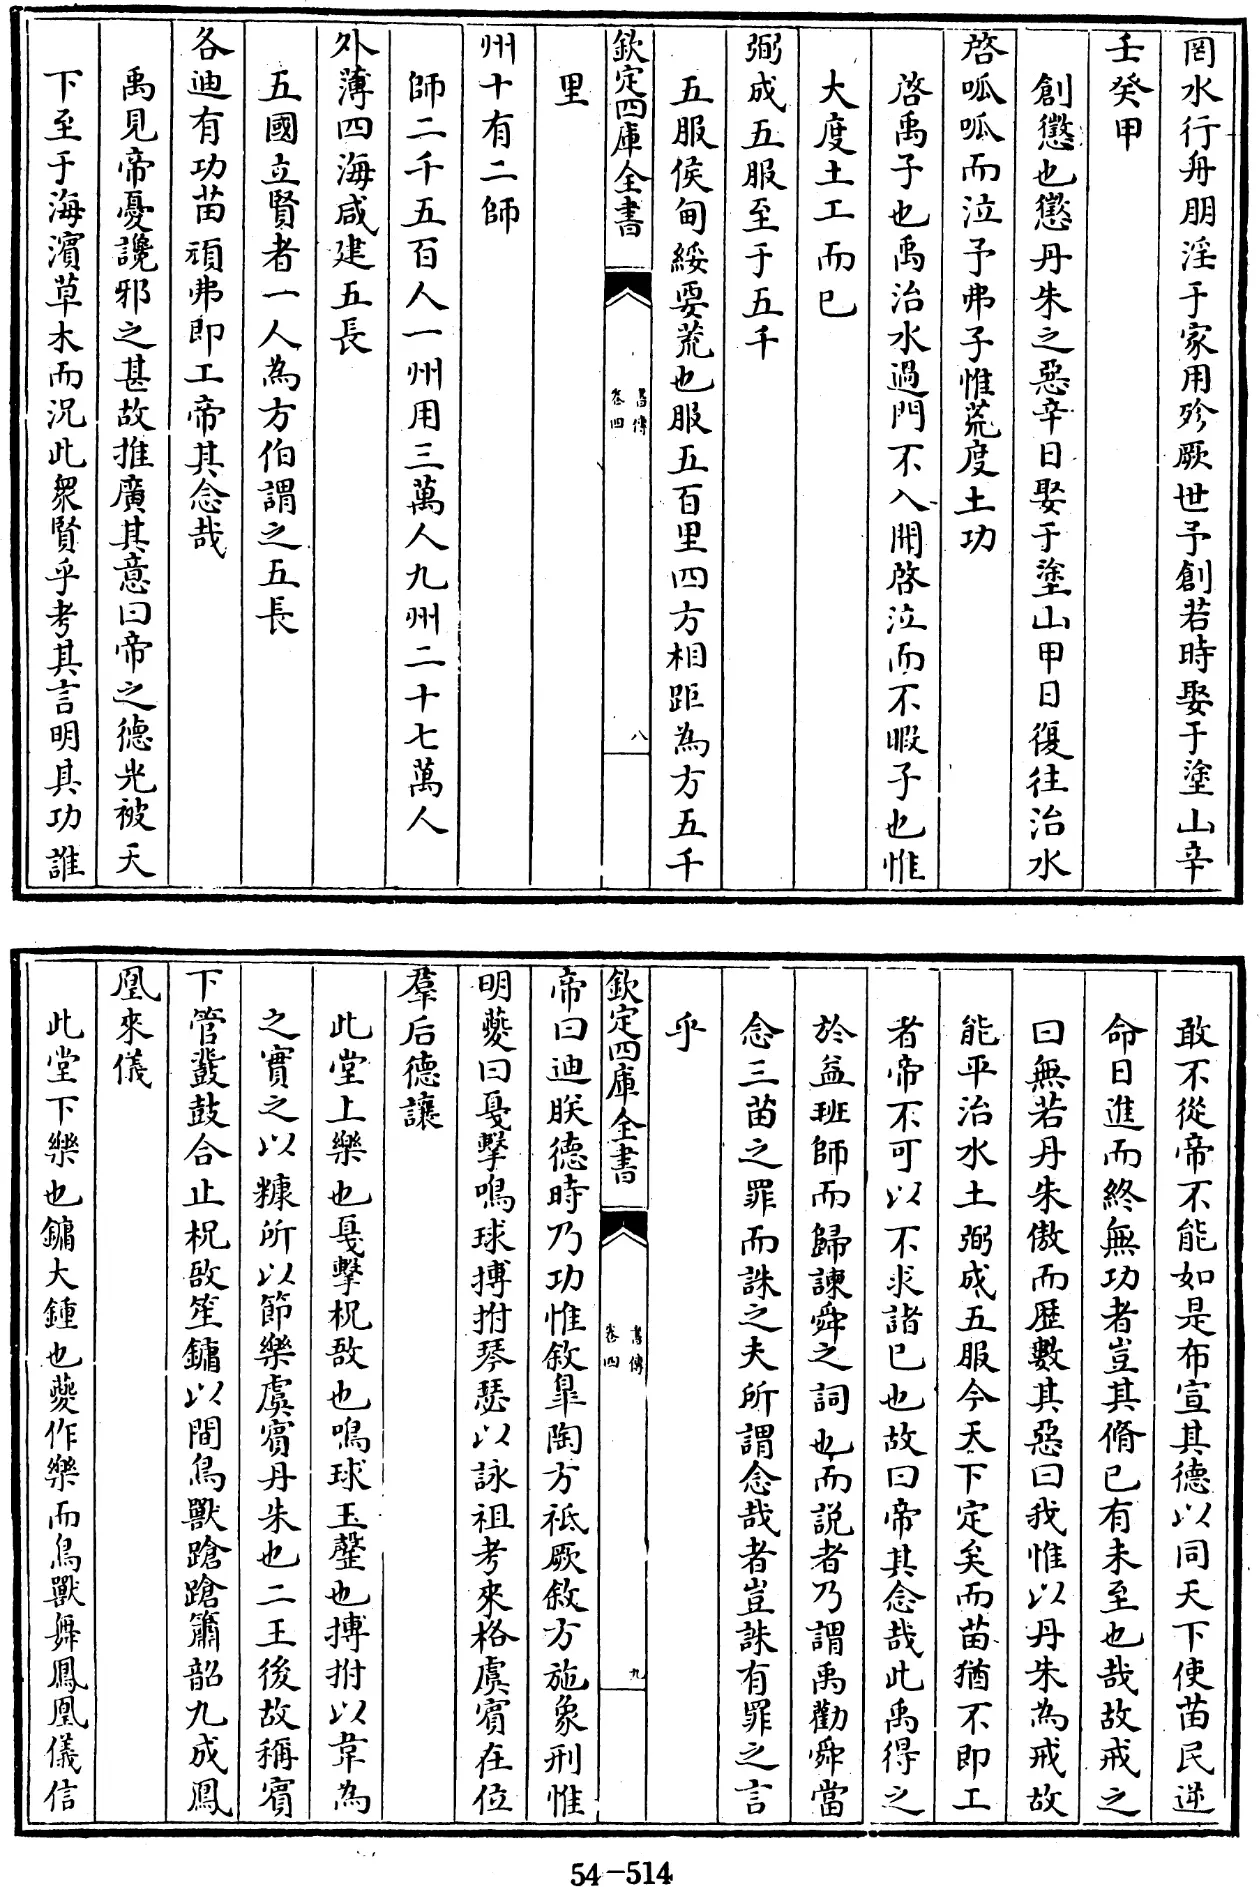 罔水行舟朋淫于家用殄厥世予創若時娶于塗山辛
壬癸甲
創懲也懲丹朱之惡辛日娶于塗山甲日復往治水
啓呱呱而泣予弗子惟荒度土功
啓禹子也禹治水過門不入聞啓泣而不暇子也惟
大度土工而已
弼成五服至于五千
五服侯甸綏要荒也服五百里四方相距為方五千
欽定四庫全書
書傳
卷四
八
里
州十有二師
師二千五百人一州用三萬人九州二十七萬人
外薄四海咸建五長
五國立賢者一人為方伯謂之五長
各迪有功苗頑弗即工帝其念哉
禹見帝憂讒邪之甚故推廣其意曰帝之德光被天
下至于海濱草木而況此衆賢乎考其言明其功誰
敢不從帝不能如是布宣其德以同天下使苗民逆
命日進而終無功者豈其脩已有未至也哉故戒之
曰無若丹朱傲而歷數其惡曰我惟以丹朱為戒故
能平治水土弼成五服今天下定矣而苗猶不即工
者帝不可以不求諸已也故曰帝其念哉此禹得之
於益班師而歸諫舜之詞也而説者乃謂禹勸舜當
念三苗之罪而誅之夫所謂念哉者豈誅有罪之言
乎
欽定四庫全書
書傳
卷四
九
帝曰迪朕德時乃功惟敘臯陶方祗厥敘方施象刑惟
明夔曰戛擊鳴球搏拊琴瑟以詠祖考來格虞賓在位
羣后德讓
此堂上樂也戛擊柷敔也鳴球玉磬也搏拊以韋為
之實之以糠所以節樂虞賓丹朱也二王後故稱賓
下管鼗鼓合止柷敔笙鏞以間鳥獸蹌蹌簫韶九成鳳
凰來儀
此堂下樂也鏞大鍾也夔作樂而鳥獸舞鳳凰儀信
54-514